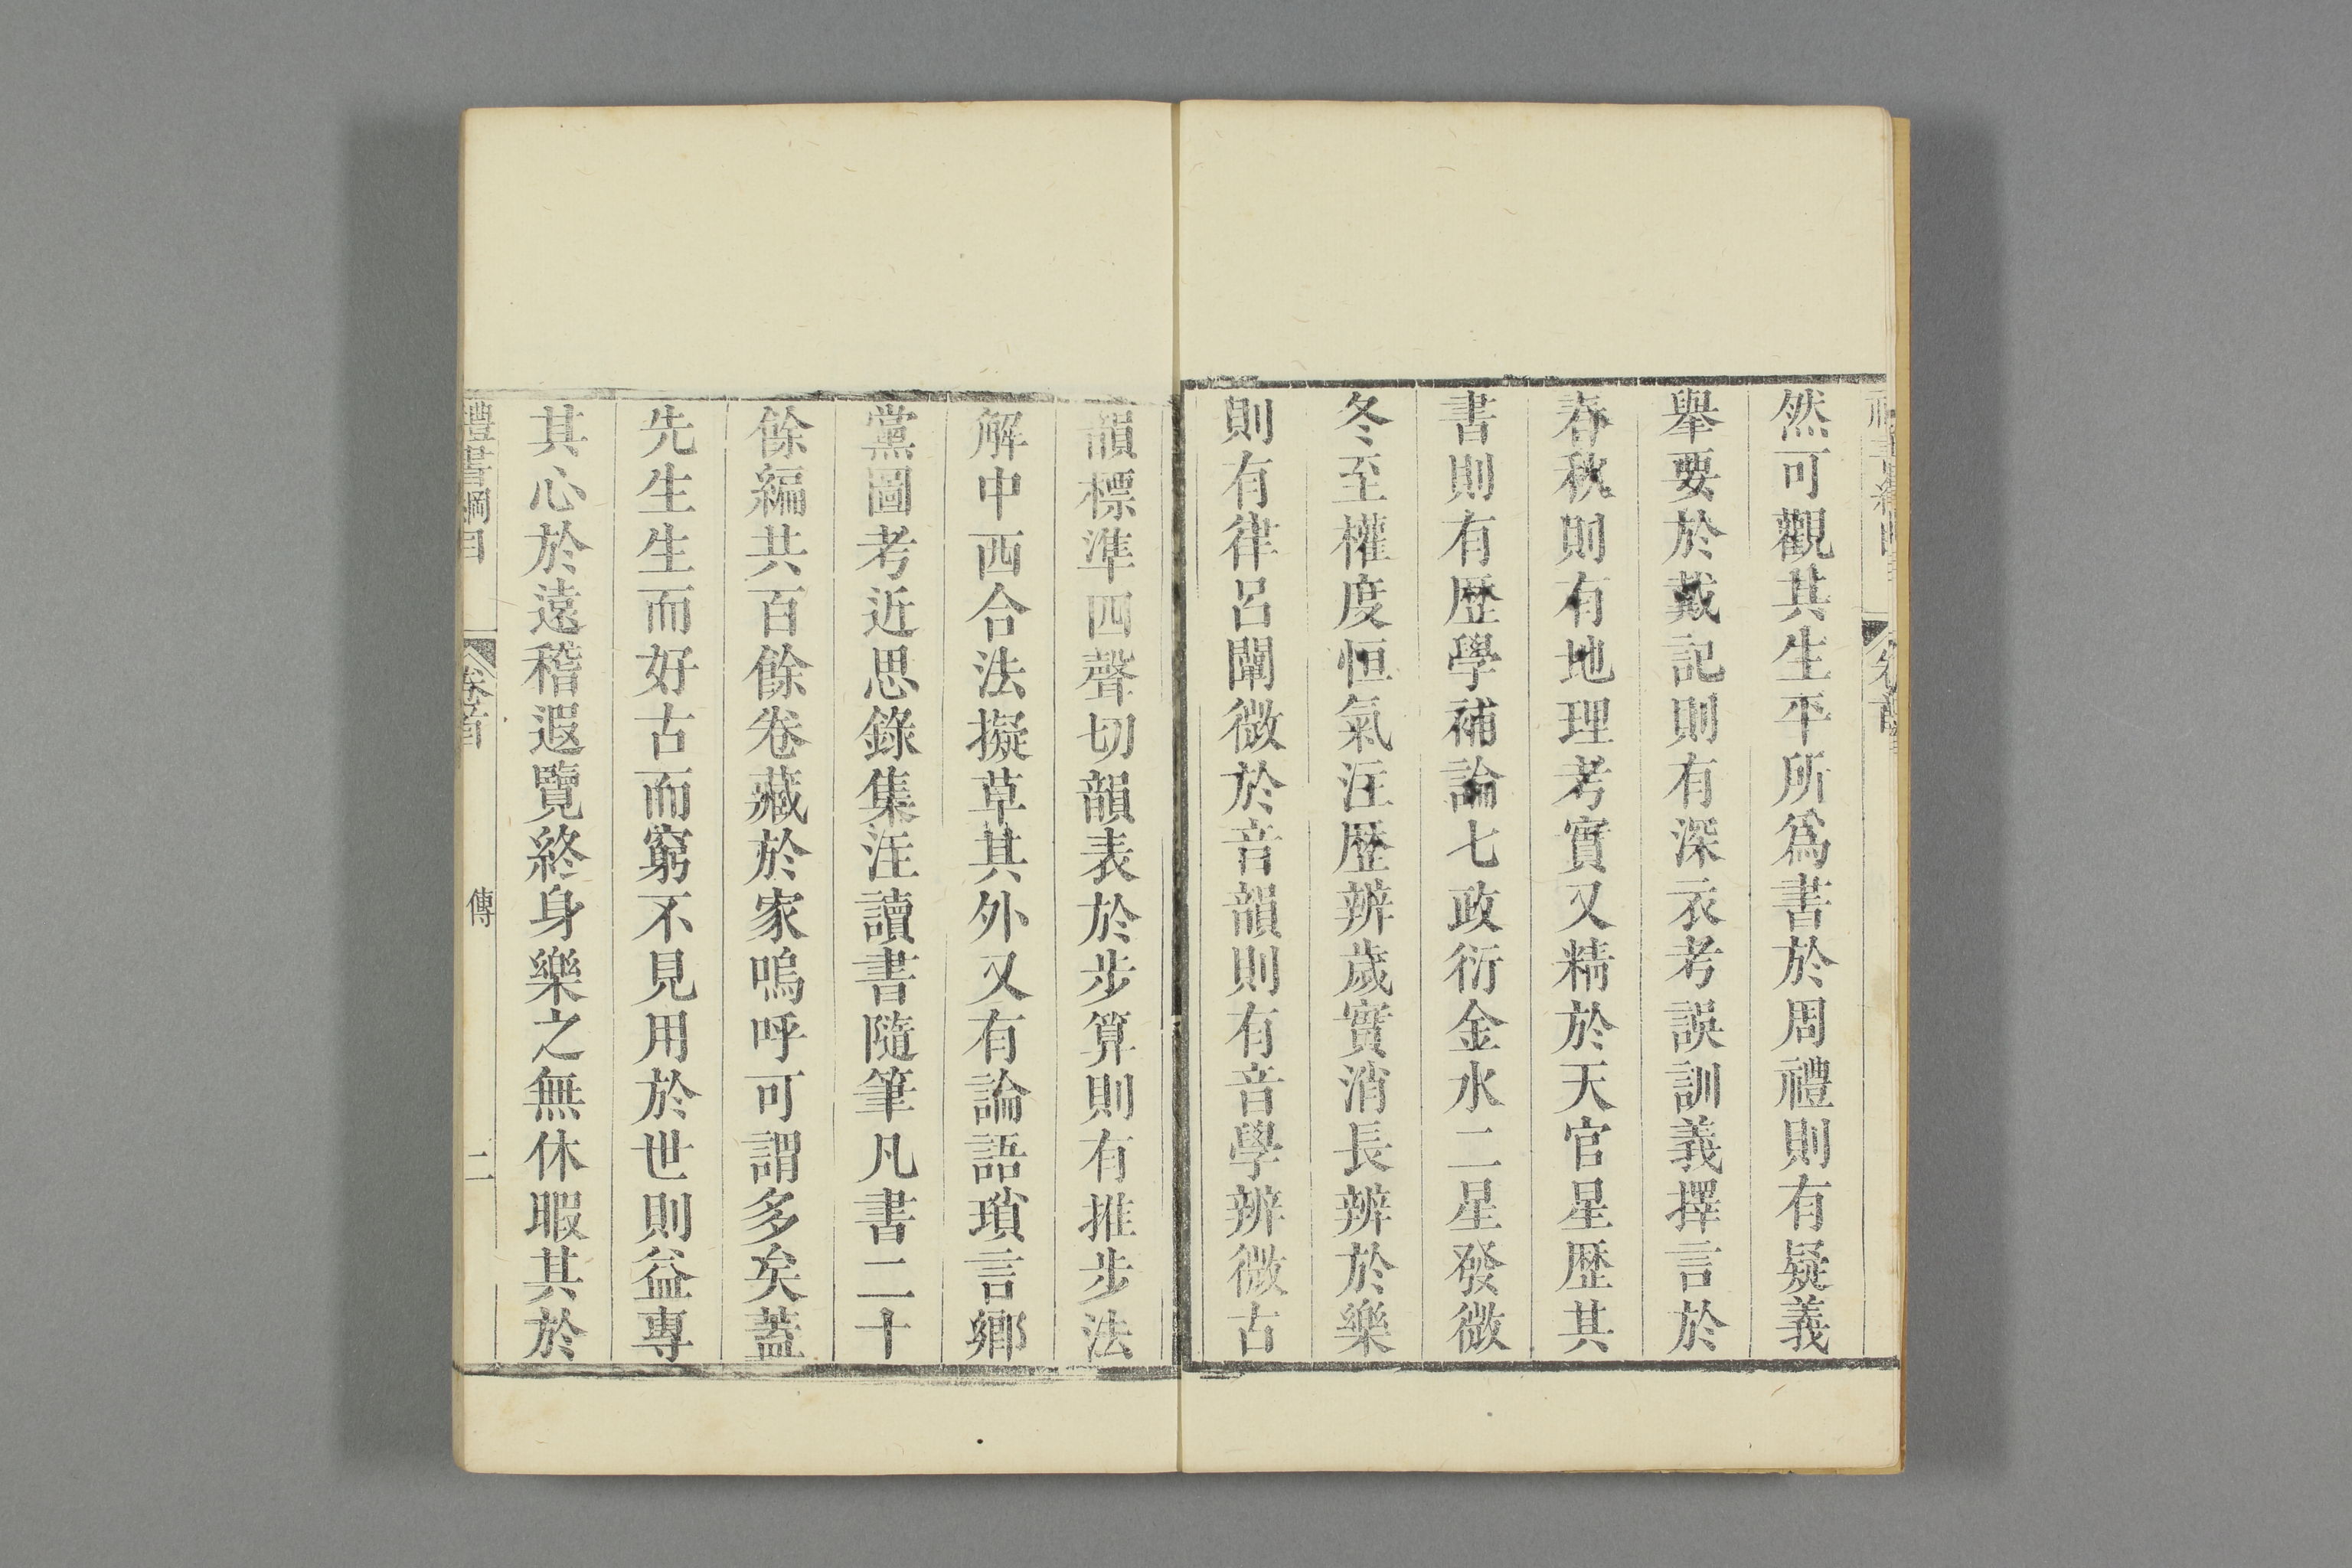 禮書綱目
卷首
然可觀其生平所爲書於周禮則有疑義
舉要於戴記則有深衣考誤訓義擇言於
春秋則有地理考實又精於天官星歴其
書則有歴學補論七政衍金水二星發微
冬至權度恒氣注歴辨歲實消長辨於樂
則有律呂闡微於音韻則有音學辨微古
韻標準四聲切韻表於步算則有推步法
解中西合法擬草其外又有論語瑣言鄉
黨圖考近思錄集注讀書隨筆凡書二十
餘編共百餘卷藏於家嗚呼可謂多矣蓋
先生生而好古而窮不見用於世則益專
其心於遠稽遐覽終身樂之無休暇其於
禮書綱目
卷首
傳
二